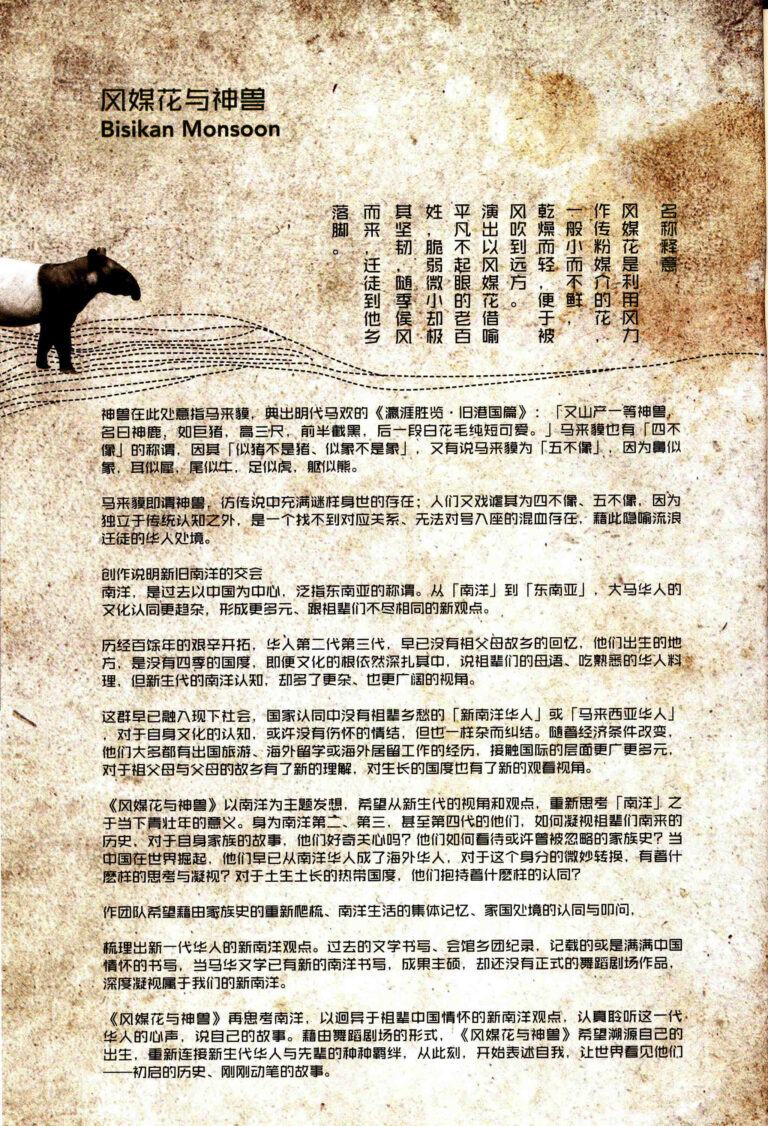 风媒花与神兽
Bisikan Monsoon
名称释意
风媒花是利用风力
作传粉媒介的花，
一般小而不鲜，
乾燥而轻，便于被
风吹到远方。
演出以风媒花借喻
平凡不起眼的老百
姓，脆弱微小却极
其坚韧，随季侯风
而来，迁徒到他乡
落脚。
神兽在此处意指马来貘，典出明代马欢的《瀛涯胜览·旧港国篇》：「又山产一等神兽，
名曰神鹿，如巨猪，高三尺，前半截黑，后一段白花毛纯短可爱。」马来貘也有「四不
像」的称谓，因其「似猪不是猪、似象不是象」，又有说马来貘为「五不像」，因为鼻似
象，耳似犀，尾似牛，足似虎，躯似熊。
马来貘即谓神兽，仿传说中充满谜样身世的存在；人们又戏谑其为四不像、五不像，因为
独立于传统认知之外，是一个找不到对应关系、无法对号入座的混血存在，藉此隐喻流浪
迁徒的华人处境。
创作说明新旧南洋的交会
南洋，是过去以中国为中心，泛指东南亚的称谓。从「南洋」到「东南亚」，大马华人的
文化认同更趋杂，形成更多元、跟祖辈们不尽相同的新观点。
历经百馀年的艰辛开拓，华人第二代第三代，早已没有祖父母故乡的回忆，他们出生的地
方，是没有四季的国度，即便文化的根依然深扎其中，说祖辈们的母语、吃熟悉的华人料
理，但新生代的南洋认知，却多了更杂、也更广阔的视角。
这群早已融入现下社会，国家认同中没有祖辈乡愁的「新南洋华人」或「马来西亚华人」
，对于自身文化的认知，或许没有伤怀的情结，但也一样杂而纠结。随着经济条件改变，
他们大多都有出国旅游、海外留学或海外居留工作的经历，接触国际的层面更广更多元，
对于祖父母与父母的故乡有了新的理解，对生长的国度也有了新的观看视角。
《风媒花与神兽》以南洋为主题发想，希望从新生代的视角和观点，重新思考「南洋」之
于当下青壮年的意义。身为南洋第二、第三，甚至第四代的他们，如何凝视祖辈们南来的
历史，对于自身家族的故事，他们好奇关心吗？他们如何看待或许曾被忽略的家族史？当
中国在世界掘起，他们早已从南洋华人成了海外华人，对于这个身分的微妙转换，有着什
麽样的思考与凝视？对于土生土长的热带国度，他们抱持着什麽样的认同？
作团队希望藉由家族史的重新爬梳、南洋生活的集体记忆、家国处境的认同与叩问，
梳理出新一代华人的新南洋观点。过去的文学书写、会馆乡团纪录，记载的或是满满中国
情怀的书写，当马华文学已有新的南洋书写，成果丰硕，却还没有正式的舞蹈剧场作品，
深度凝视属于我们的新南洋。
《风媒花与神兽》再思考南洋，以迥异于祖辈中国情怀的新南洋观点，认真聆听这一代
华人的心声，说自己的故事。藉由舞蹈剧场的形式，《风媒花与神兽》希望溯源自己的
出生，重新连接新生代华人与先辈的种种羁绊，从此刻，开始表述自我，让世界看见他们
——初启的历史、刚刚动笔的故事。